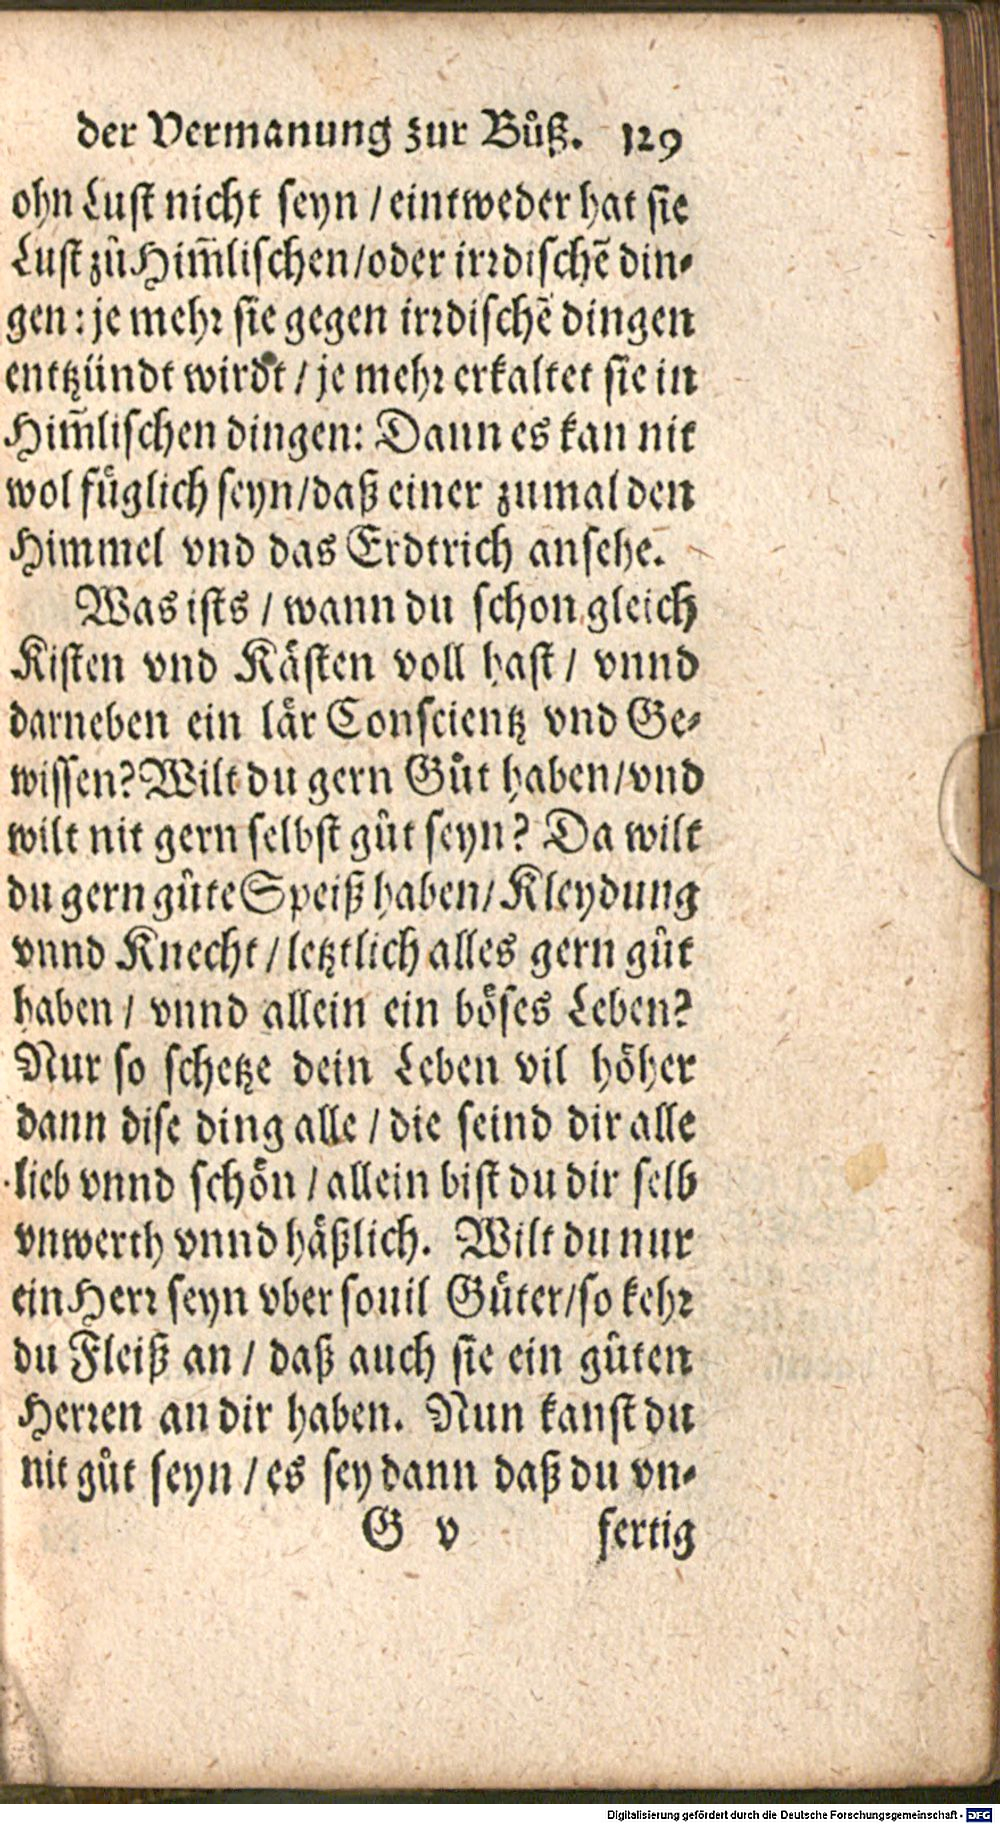 der Vermanung zur Bůß. 129
ohn Lust nicht seyn / eintweder hat sie
Lust zů Him̃lischen / oder irrdischẽ din-
gen : je mehr sie gegen irrdischẽ dingen
entzündt wirdt / je mehr erkaltet sie in
Him̃lischen dingen: Dann es kan nit
wol fůglich seyn / daß einer zumal den
Himmel vnd das Erdtrich ansehe.
Was ists / wann du schon gleich
Kisten vnd Kästen voll hast / vnnd
darneben ein lär Conscientz vnd Ge-
wissen? Wilt du gern Gůt haben / vnd
wilt nit gern selbst gůt seyn? Da wilt
du gern gůte Speiß haben / Kleydung
vnnd Knecht / letztlich alles gern gůt
haben / vnnd allein ein böses Leben?
Nur so schetze dein Leben vil höher
dann dise ding alle / die seind dir alle
lieb vnnd schön / allein bist du dir selb
vnwerth vnnd häßlich. Wilt du nur
ein Herr seyn vber souil Gůter / so kehr
du Fleiß an / daß auch sie ein gůten
Herren an dir haben. Nun kanst du
nit gůt seyn / es sey dann daß du vn-
G v fertig
Digitalisierung gefördert durch die Deutsche Forschungsgemeinschaft - DFG